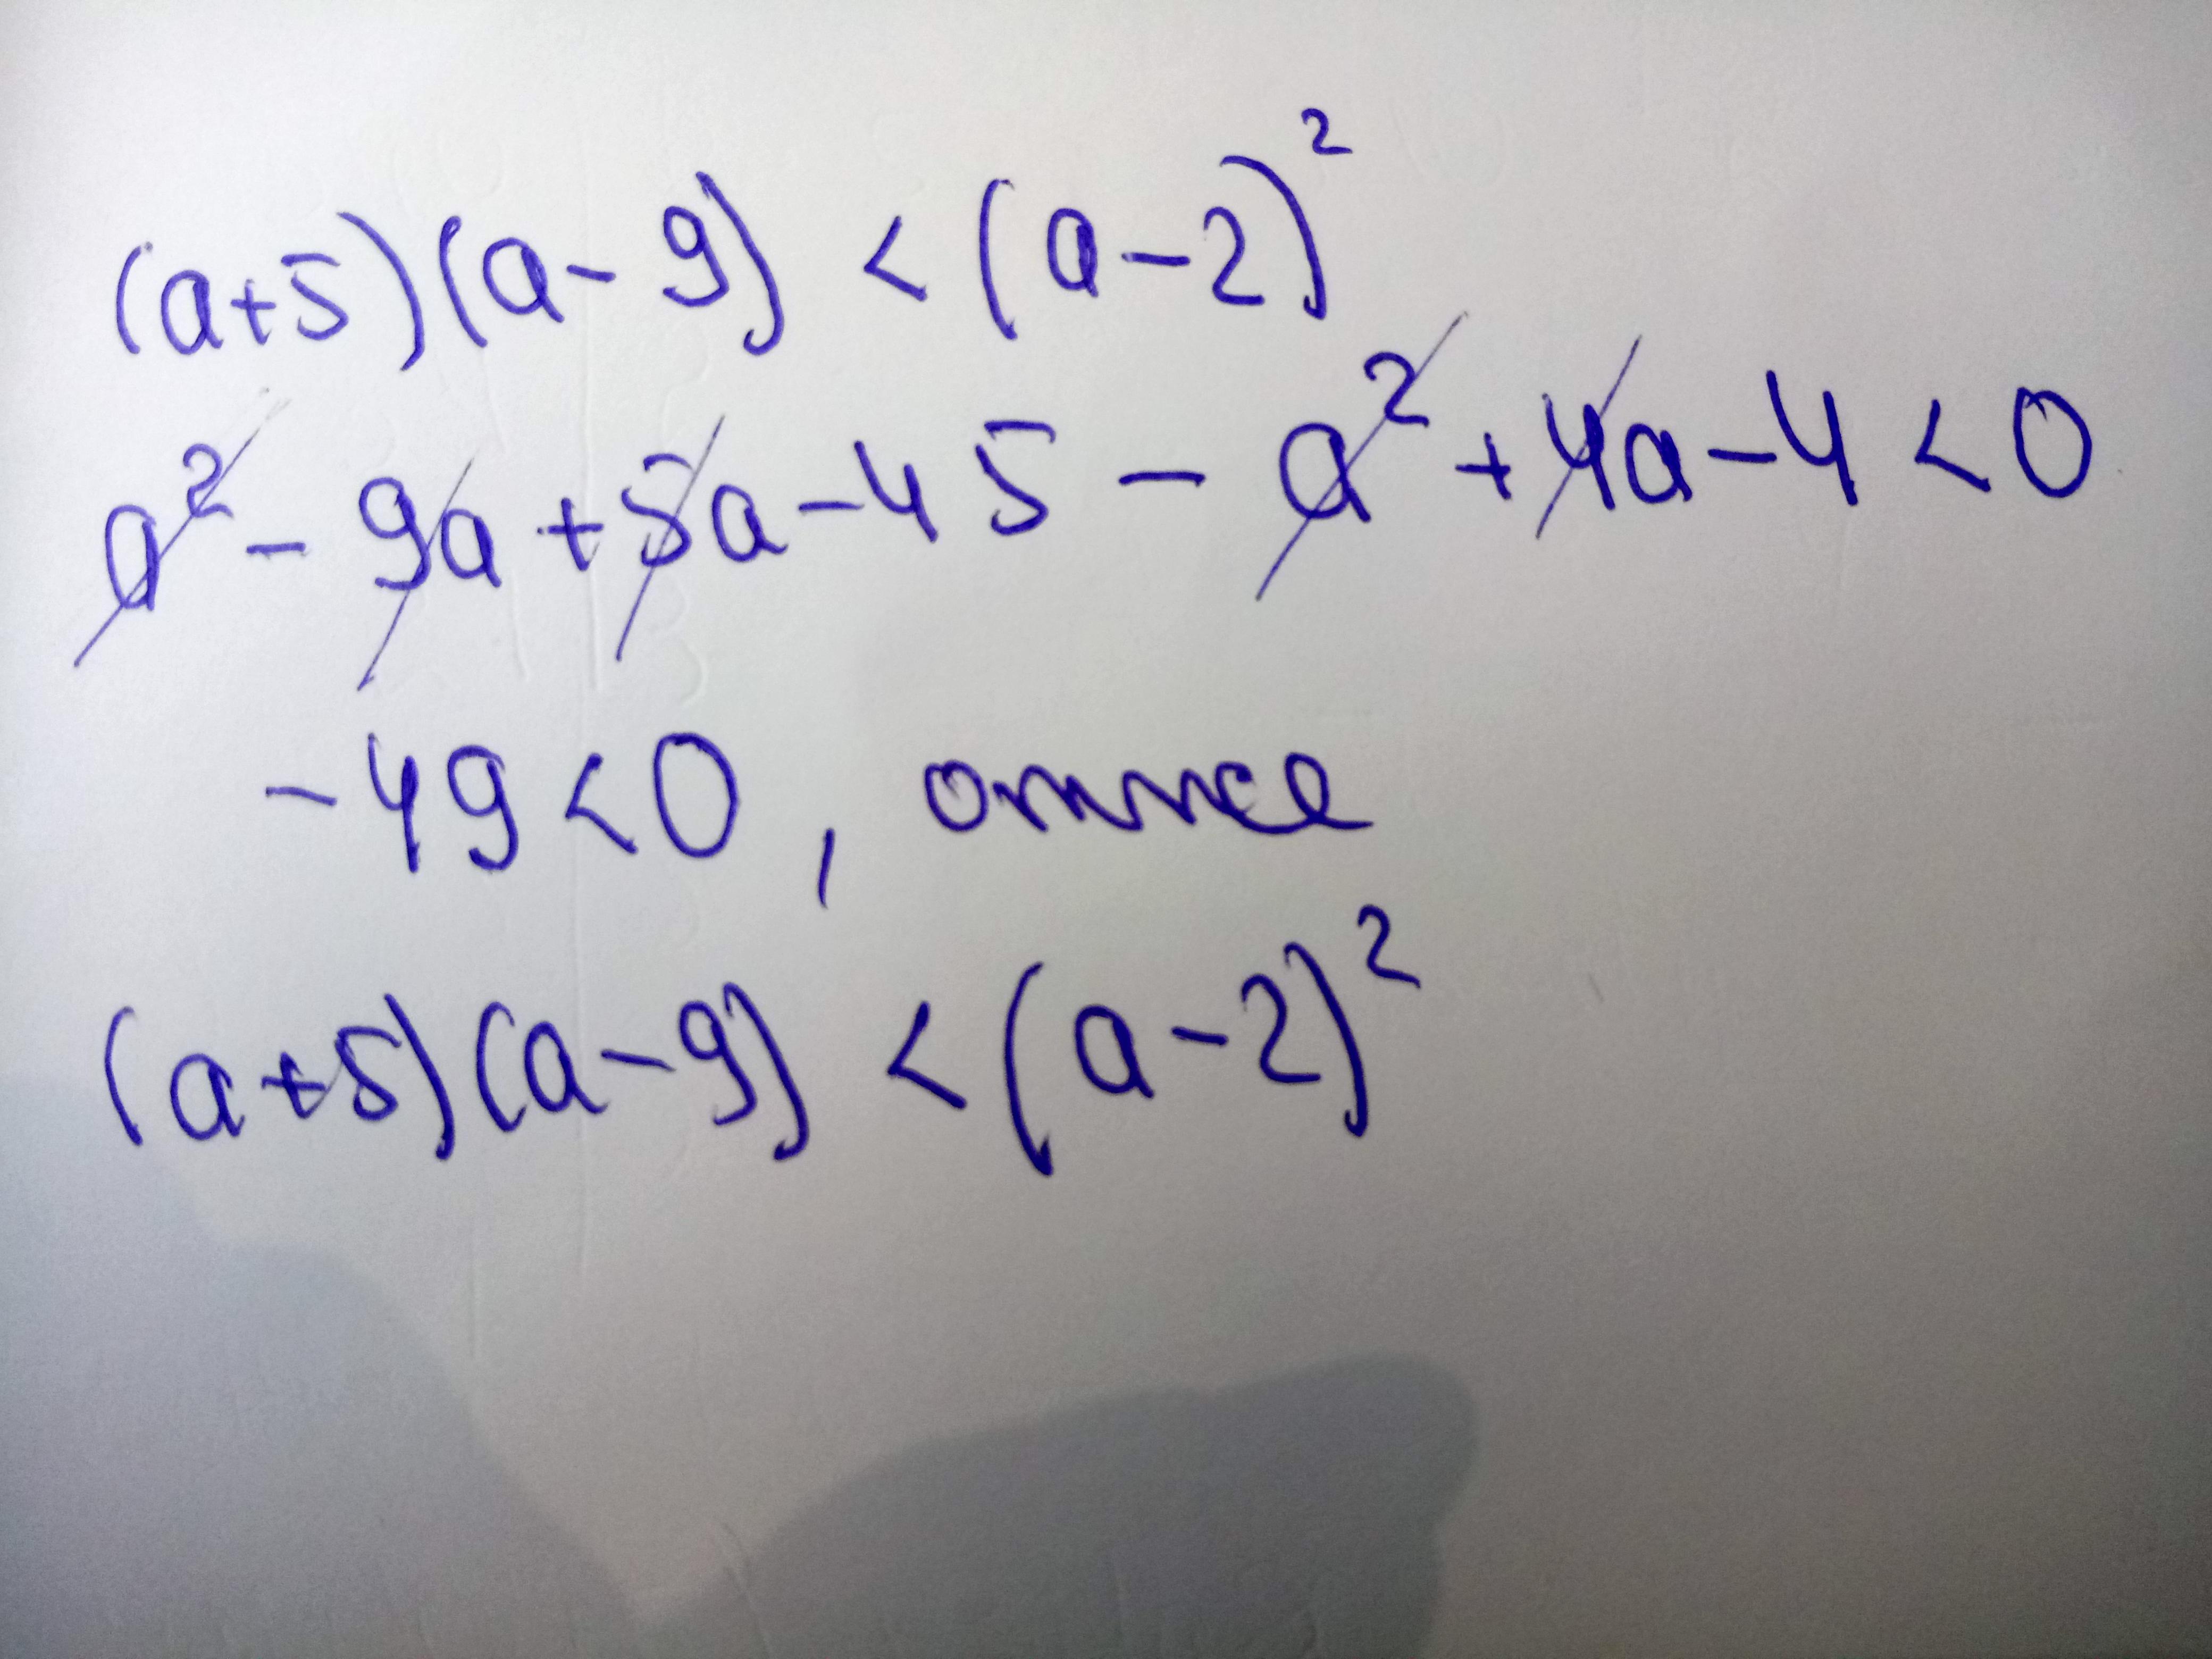 (a+5)(a-9) < (a-2)²
a² - 9a + 5a - 45 - a² + 4a - 4 < 0
-49 < 0, отже
(a+5)(a-9) < (a-2)²